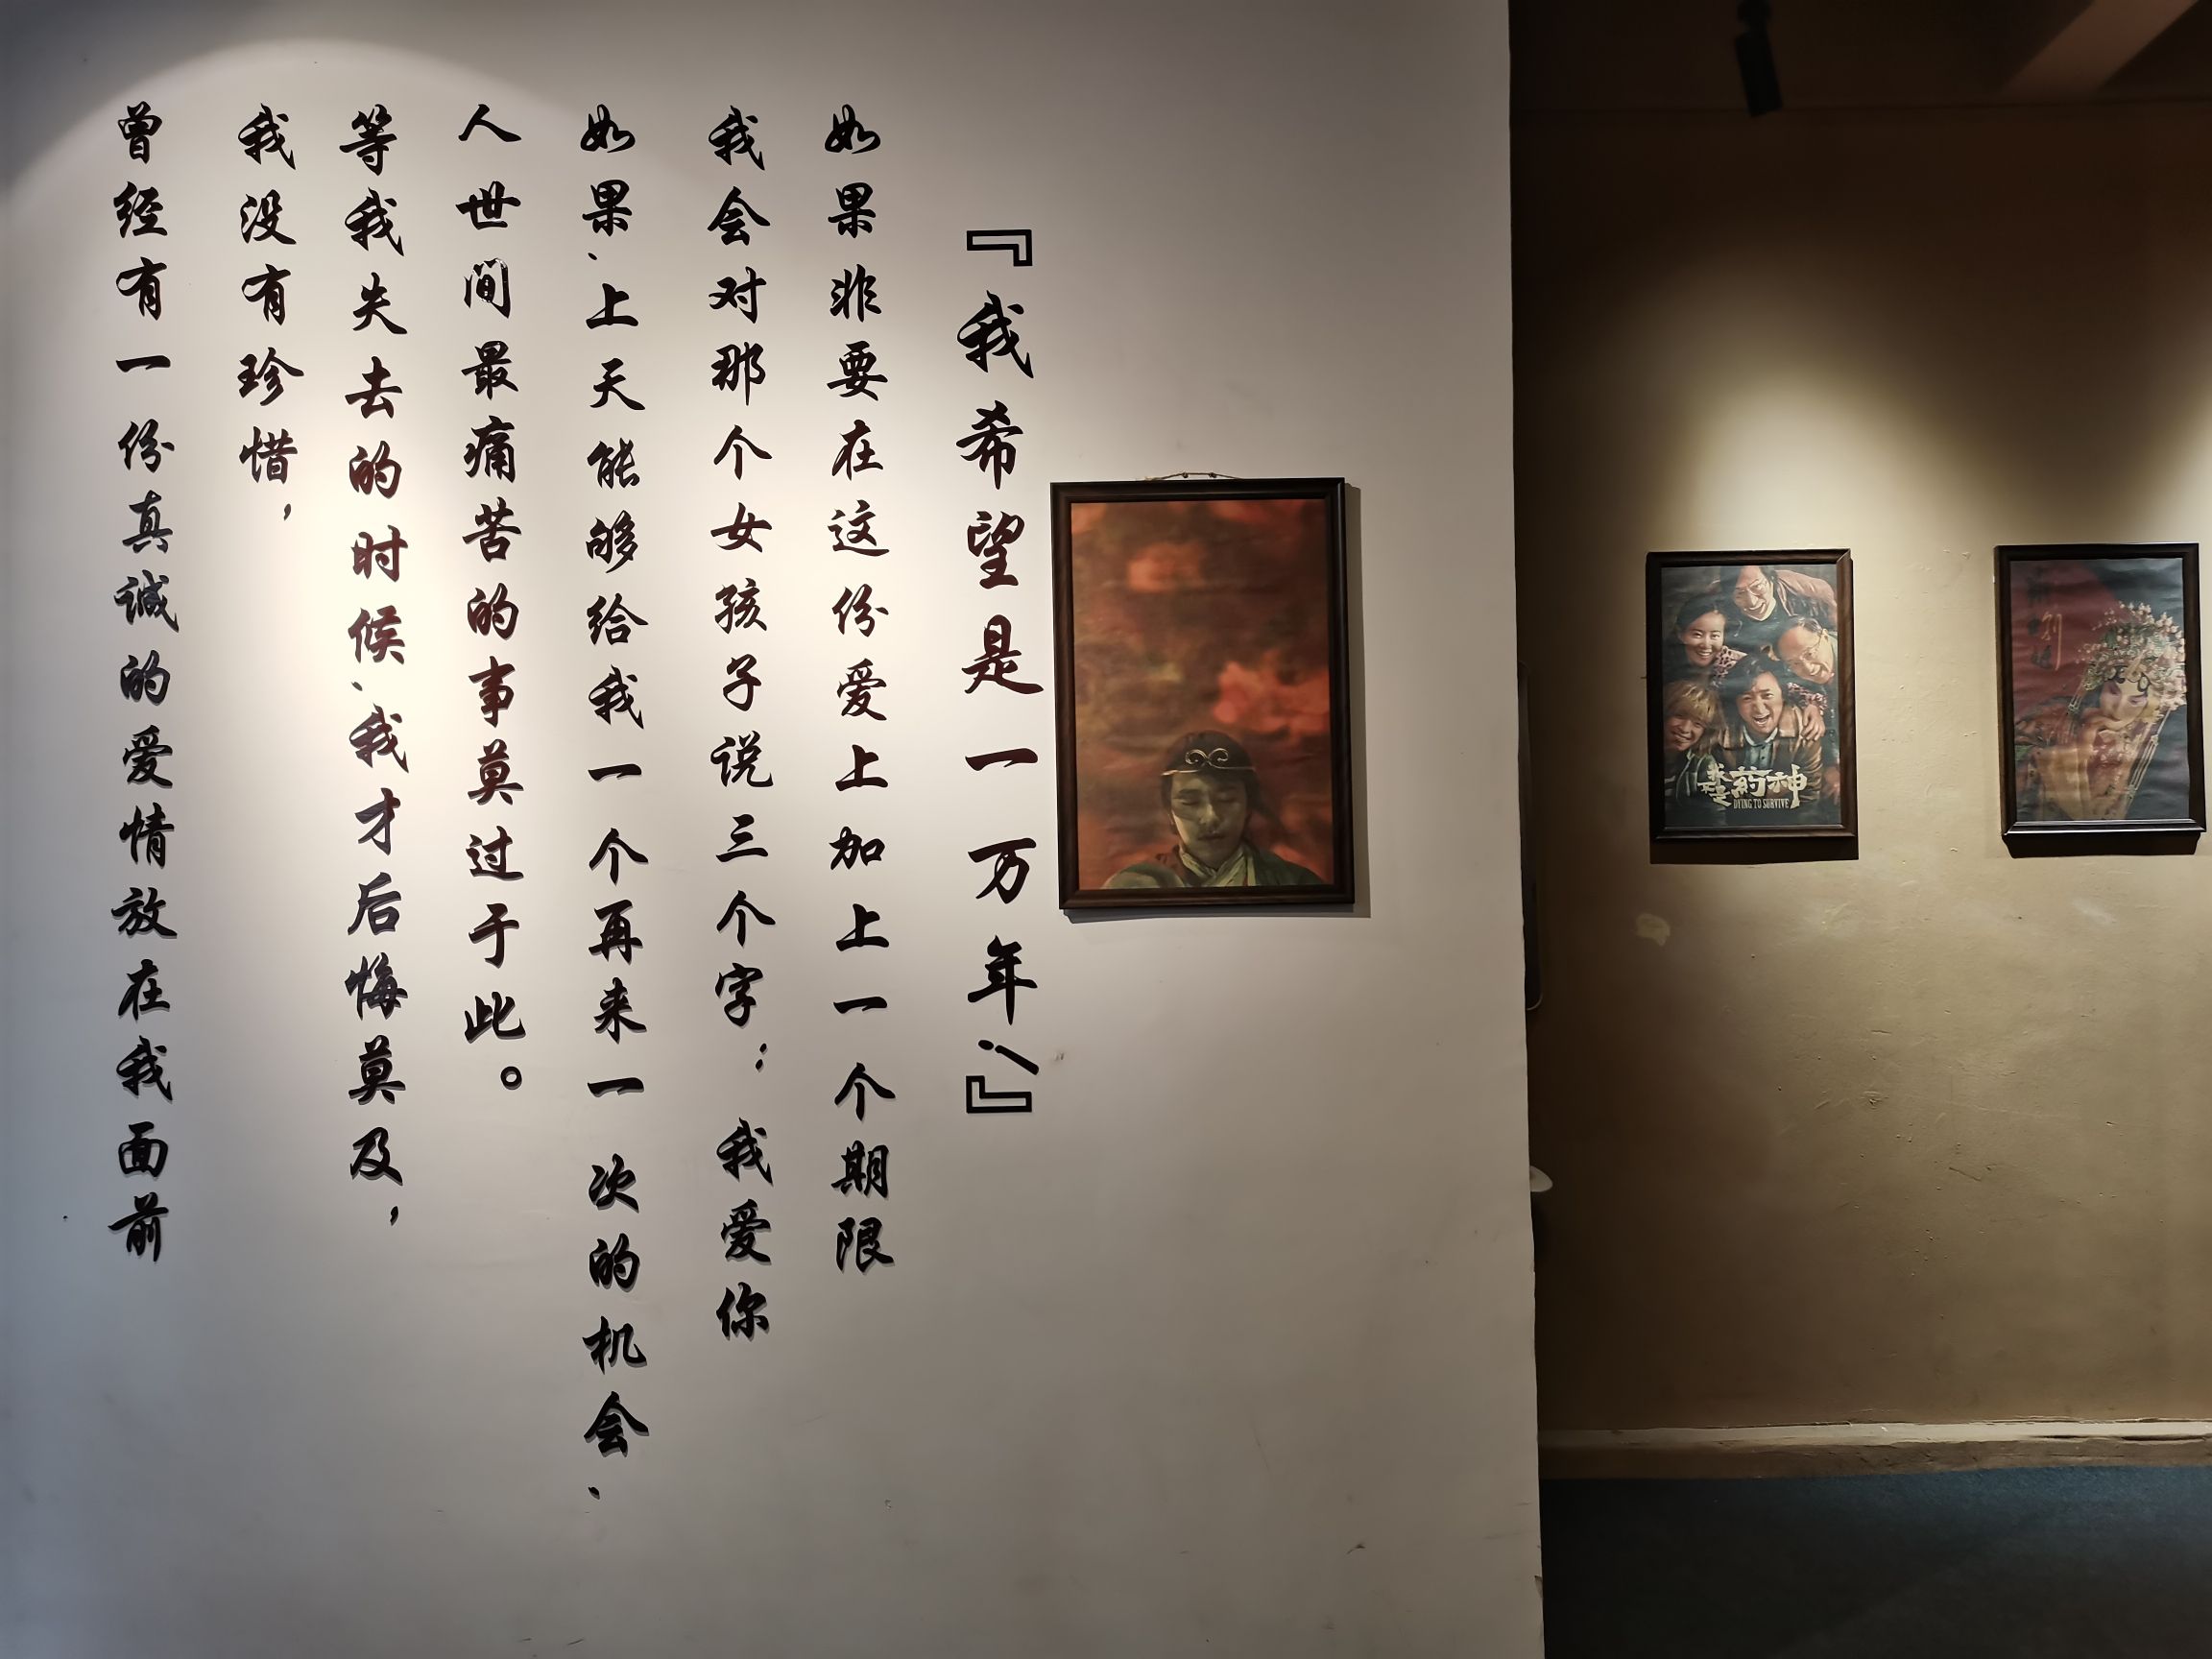 曾经有一份真诚的爱情放在我面前
我没有珍惜，
等我失去的时候、我才后悔莫及，
人世间最痛苦的事莫过于此。
如果、上天能够给我一个再来一次的机会、
我会对那个女孩子说三个字：我爱你
如果非要在这份爱上加上一个期限
『我希望是一万年！』
我不是药神
DYING TO SURVIVE